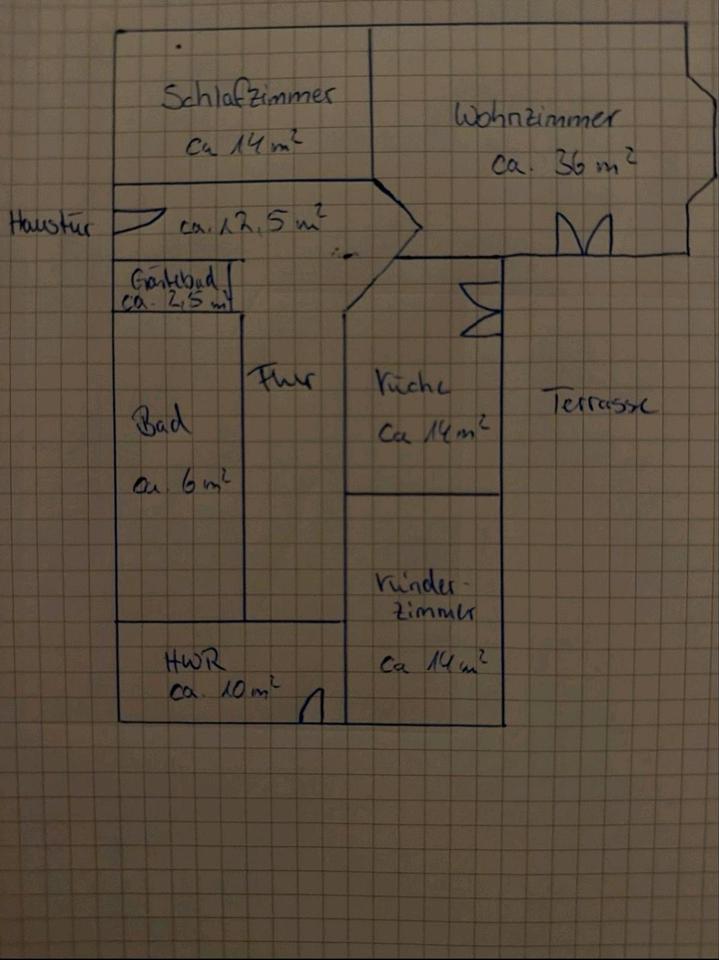 Schlafzimmer
ca 14 m²
Wohnzimmer
ca. 36 m²
Haustür
ca. 12,5 m²
Gästebad
ca. 2,5 m²
Flur
Küche
ca 14 m²
Terrasse
Bad
ca. 6 m²
Kinder-
zimmer
ca 14 m²
HWR
ca. 10 m²